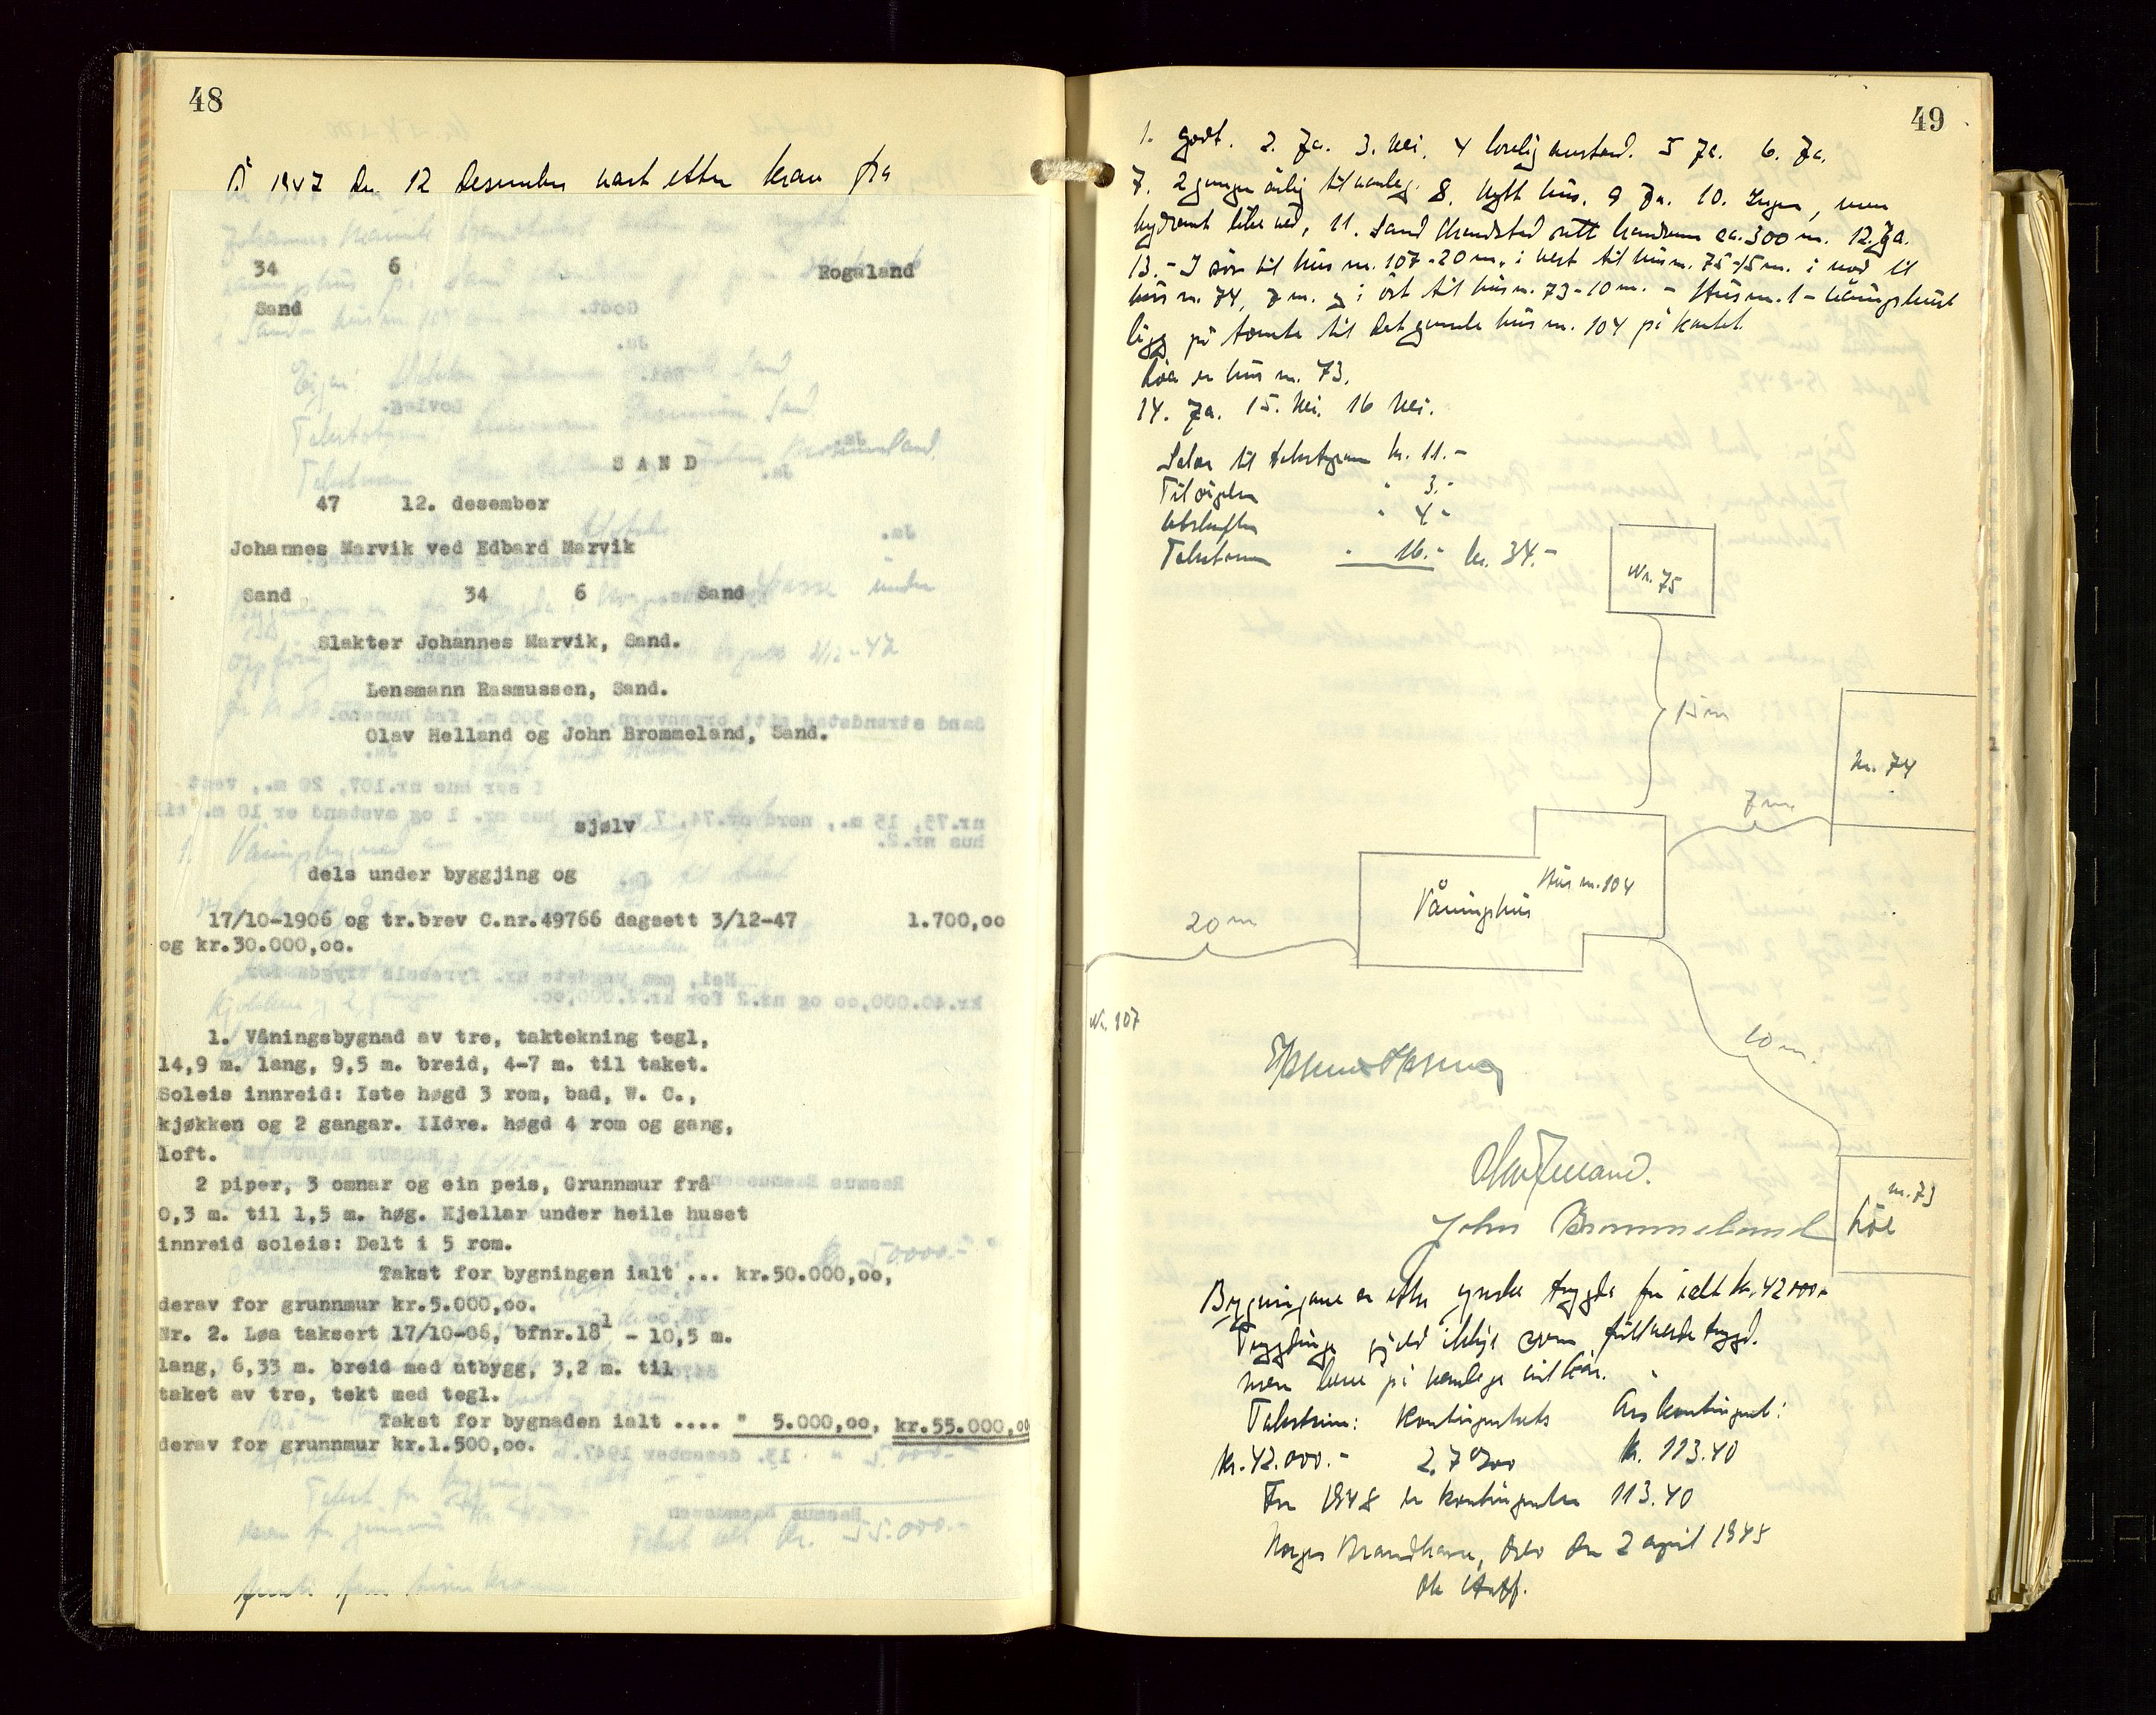 48
År 1947 den 12 desember vart etter krav frå
34 6 Rogaland
Sand
SAND
47 12. desember
Johannes Marvik ved Edbard Marvik
Sand 34 6 Sand
Slakter Johannes Marvik, Sand.
Lensmann Rasmussen, Sand.
Olav Helland og John Brommeland, Sand.
sjølv
dels under byggjing og
17/10-1906 og tr.brev C.nr.49766 dagsett 3/12-47 1.700,oo
og kr.30.000,oo.
1. Våningsbygnad av tre, taktekning tegl,
14,9 m. lang, 9,5 m. breid, 4-7 m. til taket.
Soleis innreid: Iste høgd 3 rom, bad, W. C.,
kjøkken og 2 gangar. IIdre. høgd 4 rom og gang,
loft.
2 piper, 3 omnar og ein peis, Grunnmur frå
0,3 m. til 1,5 m. høg. Kjellar under heile huset
innreid soleis: Delt i 5 rom.
Takst for bygningen ialt ... kr.50.000,oo,
derav for grunnmur kr.5.000,oo.
Nr. 2. Løa taksert 17/10-06, bfnr.18¹ - 10,5 m.
lang, 6,33 m. breid med utbygg, 3,2 m. til
taket av tre, tekt med tegl.
Takst for bygnaden ialt .... " 5.000,oo, kr.55.000,oo
derav for grunnmur kr.1.500,oo.
49
1. Godt. 2. Ja. 3. Nei. 4 lovleg avstand. 5 Ja. 6. Ja.
7. 2 gonger årleg til vanleg. 8. Nytt hus. 9 Ja. 10. Ingen, men
hydrant like ved, 11. Sand strandstad sitt brannvern ca. 300 m. 12. Ja.
13. - I sør til hus nr. 107 - 20 m., i vest til hus nr. 75 - 15 m. i nord til
hus nr. 74, 7 m. og i öst til hus nr. 73 - 10 m. - Hus nr. 1 - våningshuset
ligg på tomta til det gamle hus nr. 104 på kartet.
Löa er hus nr. 73.
14. Ja. 15. Nei. 16 Nei.
Salær til takstgjevar kr. 11.-
Til avgifter " 3.-
Utskrifter " 4 -
Takstmenn " 16.- kr. 34.-
Nr. 75
15 m
Nr. 74
7 m.
Hus nr. 104
Våningshus
20 m
Nr. 107
10 m.
nr. 73
Löe
John Brommeland
Bygningane er etter ynske trygda for ialt kr. 42000.-
Trygdinga gjeld ikkje som fullverde trygd.
men berre på vanlege vilkår.
Takstsum: Kontingentsats Årskontingent:
kr. 42.000.- 2.7 ‰ kr. 113.40
For 1948 er kontingenten 113.40
Norges Brannkasse, Oslo den 2 april 1948